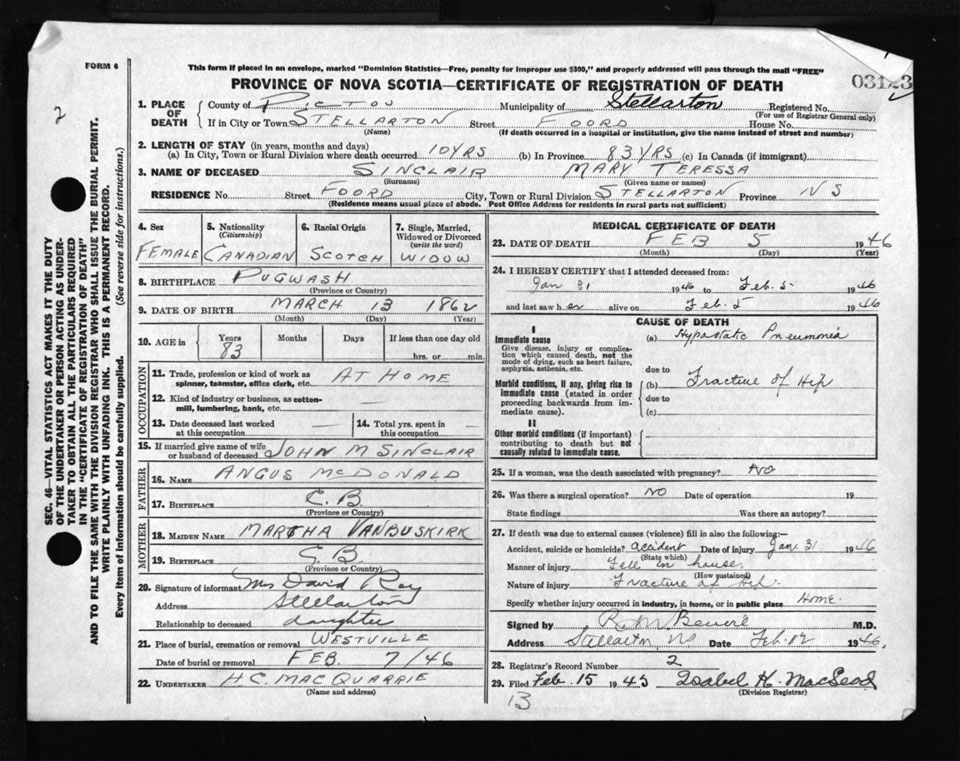 FORM 6
This form if placed in an envelope, marked "Dominion Statistics—Free, penalty for improper use $300," and properly addressed will pass through the mail "FREE"
PROVINCE OF NOVA SCOTIA—CERTIFICATE OF REGISTRATION OF DEATH
2
1. PLACE OF DEATH County of PICTOU Municipality of Stellarton Registered No.
(For use of Registrar General only)
If in City or Town STELLARTON Street FOORD House No.
(Name) (If death occurred in a hospital or institution, give the name instead of street and number)
2. LENGTH OF STAY (in years, months and days)
(a) In City, Town or Rural Division where death occurred 10 YRS (b) In Province 83 YRS (c) In Canada (if immigrant)
3. NAME OF DECEASED SINCLAIR MARY TERESSA
(Surname) (Given name or names)
RESIDENCE No. Street FOORD City, Town or Rural Division STELLARTON Province NS
(Residence means usual place of abode. Post Office Address for residents in rural parts not sufficient)
4. Sex 5. Nationality (Citizenship) 6. Racial Origin 7. Single, Married, Widowed or Divorced (write the word)
FEMALE CANADIAN SCOTCH WIDOW
8. BIRTHPLACE PUGWASH
(Province or Country)
9. DATE OF BIRTH MARCH 13 1862
(Month) (Day) (Year)
10. AGE in Years Months Days If less than one day old
83 hrs. or min.
OCCUPATION
11. Trade, profession or kind of work as spinner, teamster, office clerk, etc. AT HOME
12. Kind of industry or business, as cotton-mill, lumbering, bank, etc. —
13. Date deceased last worked at this occupation — 14. Total yrs. spent in this occupation —
15. If married give name of wife or husband of deceased JOHN M SINCLAIR
FATHER
16. NAME ANGUS McDONALD
17. BIRTHPLACE C.B.
(Province or Country)
MOTHER
18. MAIDEN NAME MARTHA VANBUSKIRK
19. BIRTHPLACE C.B.
(Province or Country)
20. Signature of informant Mrs David Roy
Address Stellarton
Relationship to deceased daughter
21. Place of burial, cremation or removal WESTVILLE
Date of burial or removal FEB. 7/46
22. UNDERTAKER H.C. MACQUARRIE
(Name and address)
MEDICAL CERTIFICATE OF DEATH
23. DATE OF DEATH FEB 5 1946
(Month) (Day) (Year)
24. I HEREBY CERTIFY that I attended deceased from:
Jan 31 1946 to Feb. 5 1946
and last saw her alive on Feb. 5 1946
CAUSE OF DEATH
I
Immediate cause (a) Hypostatic Pneumonia
Give disease, injury or complication which caused death, not the mode of dying, such as heart failure, asphyxia, asthenia, etc.
due to
Morbid conditions, if any, giving rise to immediate cause (stated in order proceeding backwards from immediate cause).
(b) Fracture of Hip
due to
(c)
II
Other morbid conditions (if important) contributing to death but not causally related to immediate cause.
25. If a woman, was the death associated with pregnancy? No
26. Was there a surgical operation? NO Date of operation 19
State findings Was there an autopsy?
27. If death was due to external causes (violence) fill in also the following:—
Accident, suicide or homicide? accident Date of injury Jan. 31 1946
(State which)
Manner of injury Fell in house.
(How sustained)
Nature of injury Fracture of Hip.
Specify whether injury occurred in industry, in home, or in public place Home.
Signed by M.D.
Address Stellarton, NS Date Feb 12 1946
28. Registrar's Record Number 2
29. Filed Feb. 15 1945 Isabel H. MacLeod
(Division Registrar)
13
SEC. 46—VITAL STATISTICS ACT MAKES IT THE DUTY
OF THE UNDERTAKER OR PERSON ACTING AS UNDER-
TAKER TO OBTAIN ALL THE PARTICULARS REQUIRED
IN THE "CERTIFICATE OF REGISTRATION OF DEATH"
AND TO FILE THE SAME WITH THE DIVISION REGISTRAR WHO SHALL ISSUE THE BURIAL PERMIT.
WRITE PLAINLY WITH UNFADING INK. THIS IS A PERMANENT RECORD.
Every item of information should be carefully supplied. (See reverse side for instructions.)